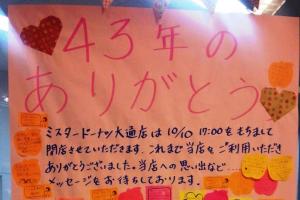 43年の
ありがとう
ミスタードーナツ大通店は 10/10 17:00をもちまして
閉店させていただきます。これまで当店をご利用いただき
ありがとうございました。当店への思い出など……
メッセージをお待ちしております。